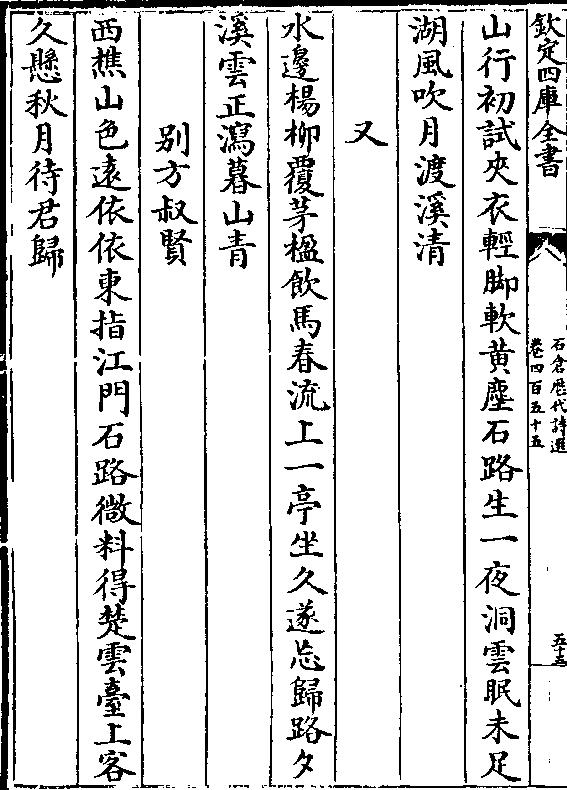 欽定四庫全書
石倉歷代詩選
卷四百五十五
五十五
山行初試夾衣輕脚軟黄塵石路生一夜洞雲眠未足
湖風吹月渡溪清
又
水邊楊柳覆茅楹飲馬春流上一亭坐久遂忘歸路夕
溪雲正瀉暮山青
別方叔賢
西樵山色遠依依東指江門石路微料得楚雲臺上客
久懸秋月待君歸